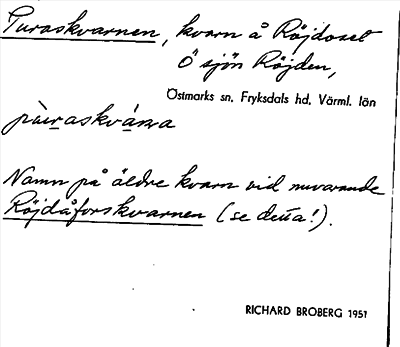 Puraskvarnen, kvarn å Röjdoset
Ö sjön Röjden,
Östmarks sn. Fryksdals hd. Värml. län
Namn på äldre kvarn vid nuvarande
Röjdåforskvarnen (se detta!).
RICHARD BROBERG 1951